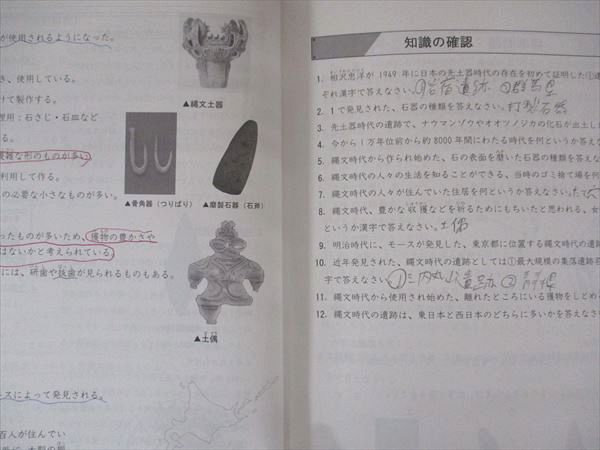 が使用されるようになった。
き、使用している。
けて製作する。
理用：石さじ・石皿など
▲縄文土器
複雑な形のものが多い
利用して作る。
の必要な小さなものが多い。
▲骨角器（つりばり）
▲磨製石器（石斧）
ったものが多いため、獲物の豊かさや
はないかと考えられている
には、研歯や抜歯が見られるものもある。
▲土偶
ースによって発見される。
百人が住んでい
知識の確認
1. 相沢忠洋が 1949 年に日本の先土器時代の存在を初めて証明した①遺
それ漢字で答えなさい。①岩宿遺跡 ②群馬県
2. 1で発見された、石器の種類を答えなさい。打製石器
3. 先土器時代の遺跡で、ナウマンゾウやオオツノジカの化石が出土し
4. 今から1万年位前から約8000年間にわたる時代を何というか答えな
5. 縄文時代から作られ始めた、石の表面を磨いた石器の種類を答えな
6. 縄文時代の人々の生活を知ることができる、当時のゴミ捨て場を何
7. 縄文時代の人々が住んでいた住居を何というか答えなさい。たて穴
8. 縄文時代、豊かな収穫などを祈るためにもちいたと思われる、女
というか漢字で答えなさい。土偶
9. 明治時代に、モースが発見した、東京都に位置する縄文時代の遺跡
10. 近年発見された、縄文時代の遺跡としては①最大規模の集落遺跡名
字で答えなさい。①三内丸山遺跡 ②青森県
11. 縄文時代から使用され始めた、離れたところにいる獲物をしとめる
12. 縄文時代の遺跡は、東日本と西日本のどちらに多いかを答えなさ